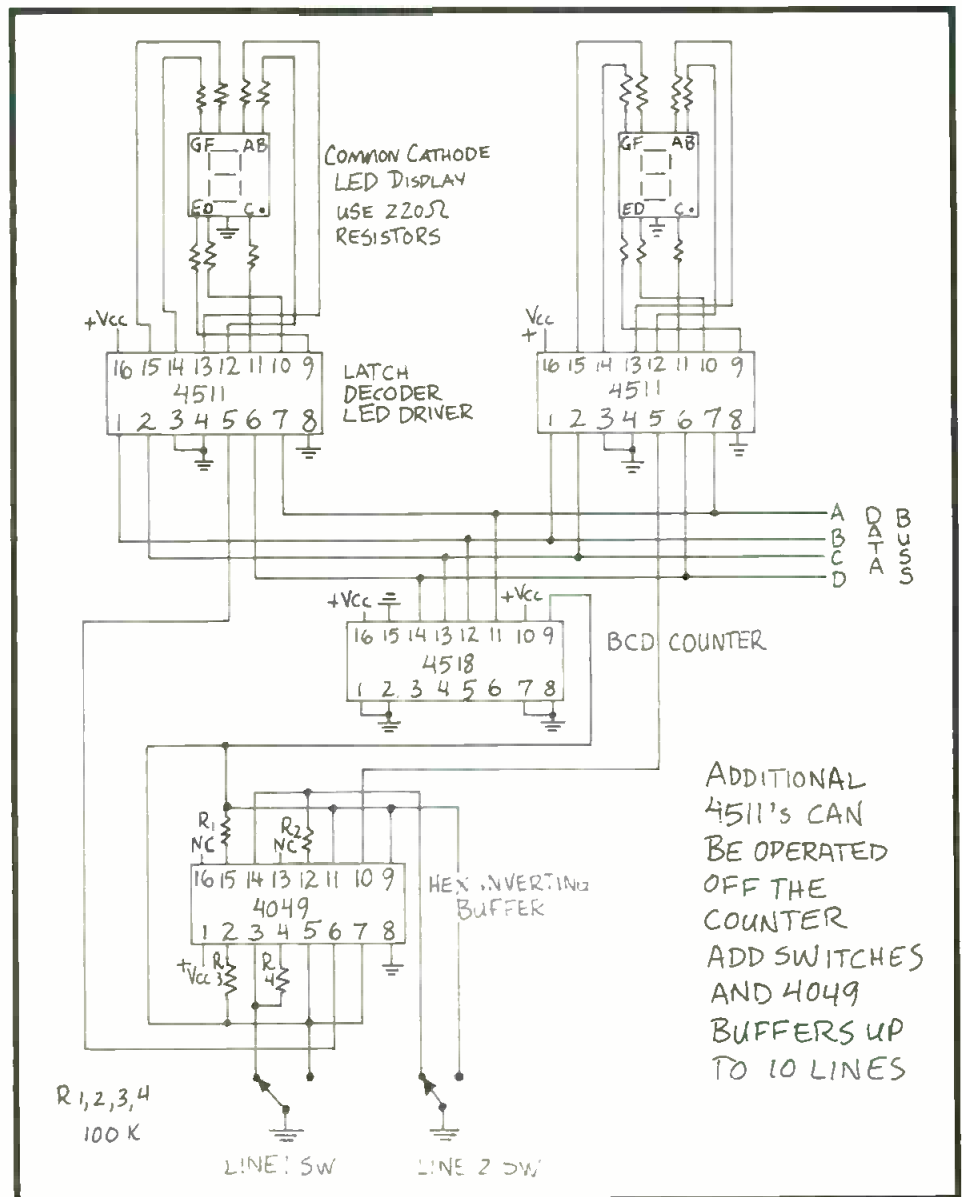 GF AB
ED C.
COMMON CATHODE
LED DISPLAY
USE 220Ω
RESISTORS
GF AB
ED C.
+Vcc
16 15 14 13 12 11 10 9
4511
1 2 3 4 5 6 7 8
LATCH
DECODER
LED DRIVER
Vcc
+
16 15 14 13 12 11 10 9
4511
1 2 3 4 5 6 7 8
A
B
C
D
DATA
BUSS
+Vcc
+Vcc
16 15 14 13 12 11 10 9
4518
1 2 3 4 5 6 7 8
BCD COUNTER
R1
NC
R2
NC
16 15 14 13 12 11 10 9
4049
1 2 3 4 5 6 7 8
+Vcc
R3
R4
HEX INVERTING
BUFFER
ADDITIONAL
4511's CAN
BE OPERATED
OFF THE
COUNTER
ADD SWITCHES
AND 4049
BUFFERS UP
TO 10 LINES
R1,2,3,4
100 K
LINE 1 SW
LINE 2 SW